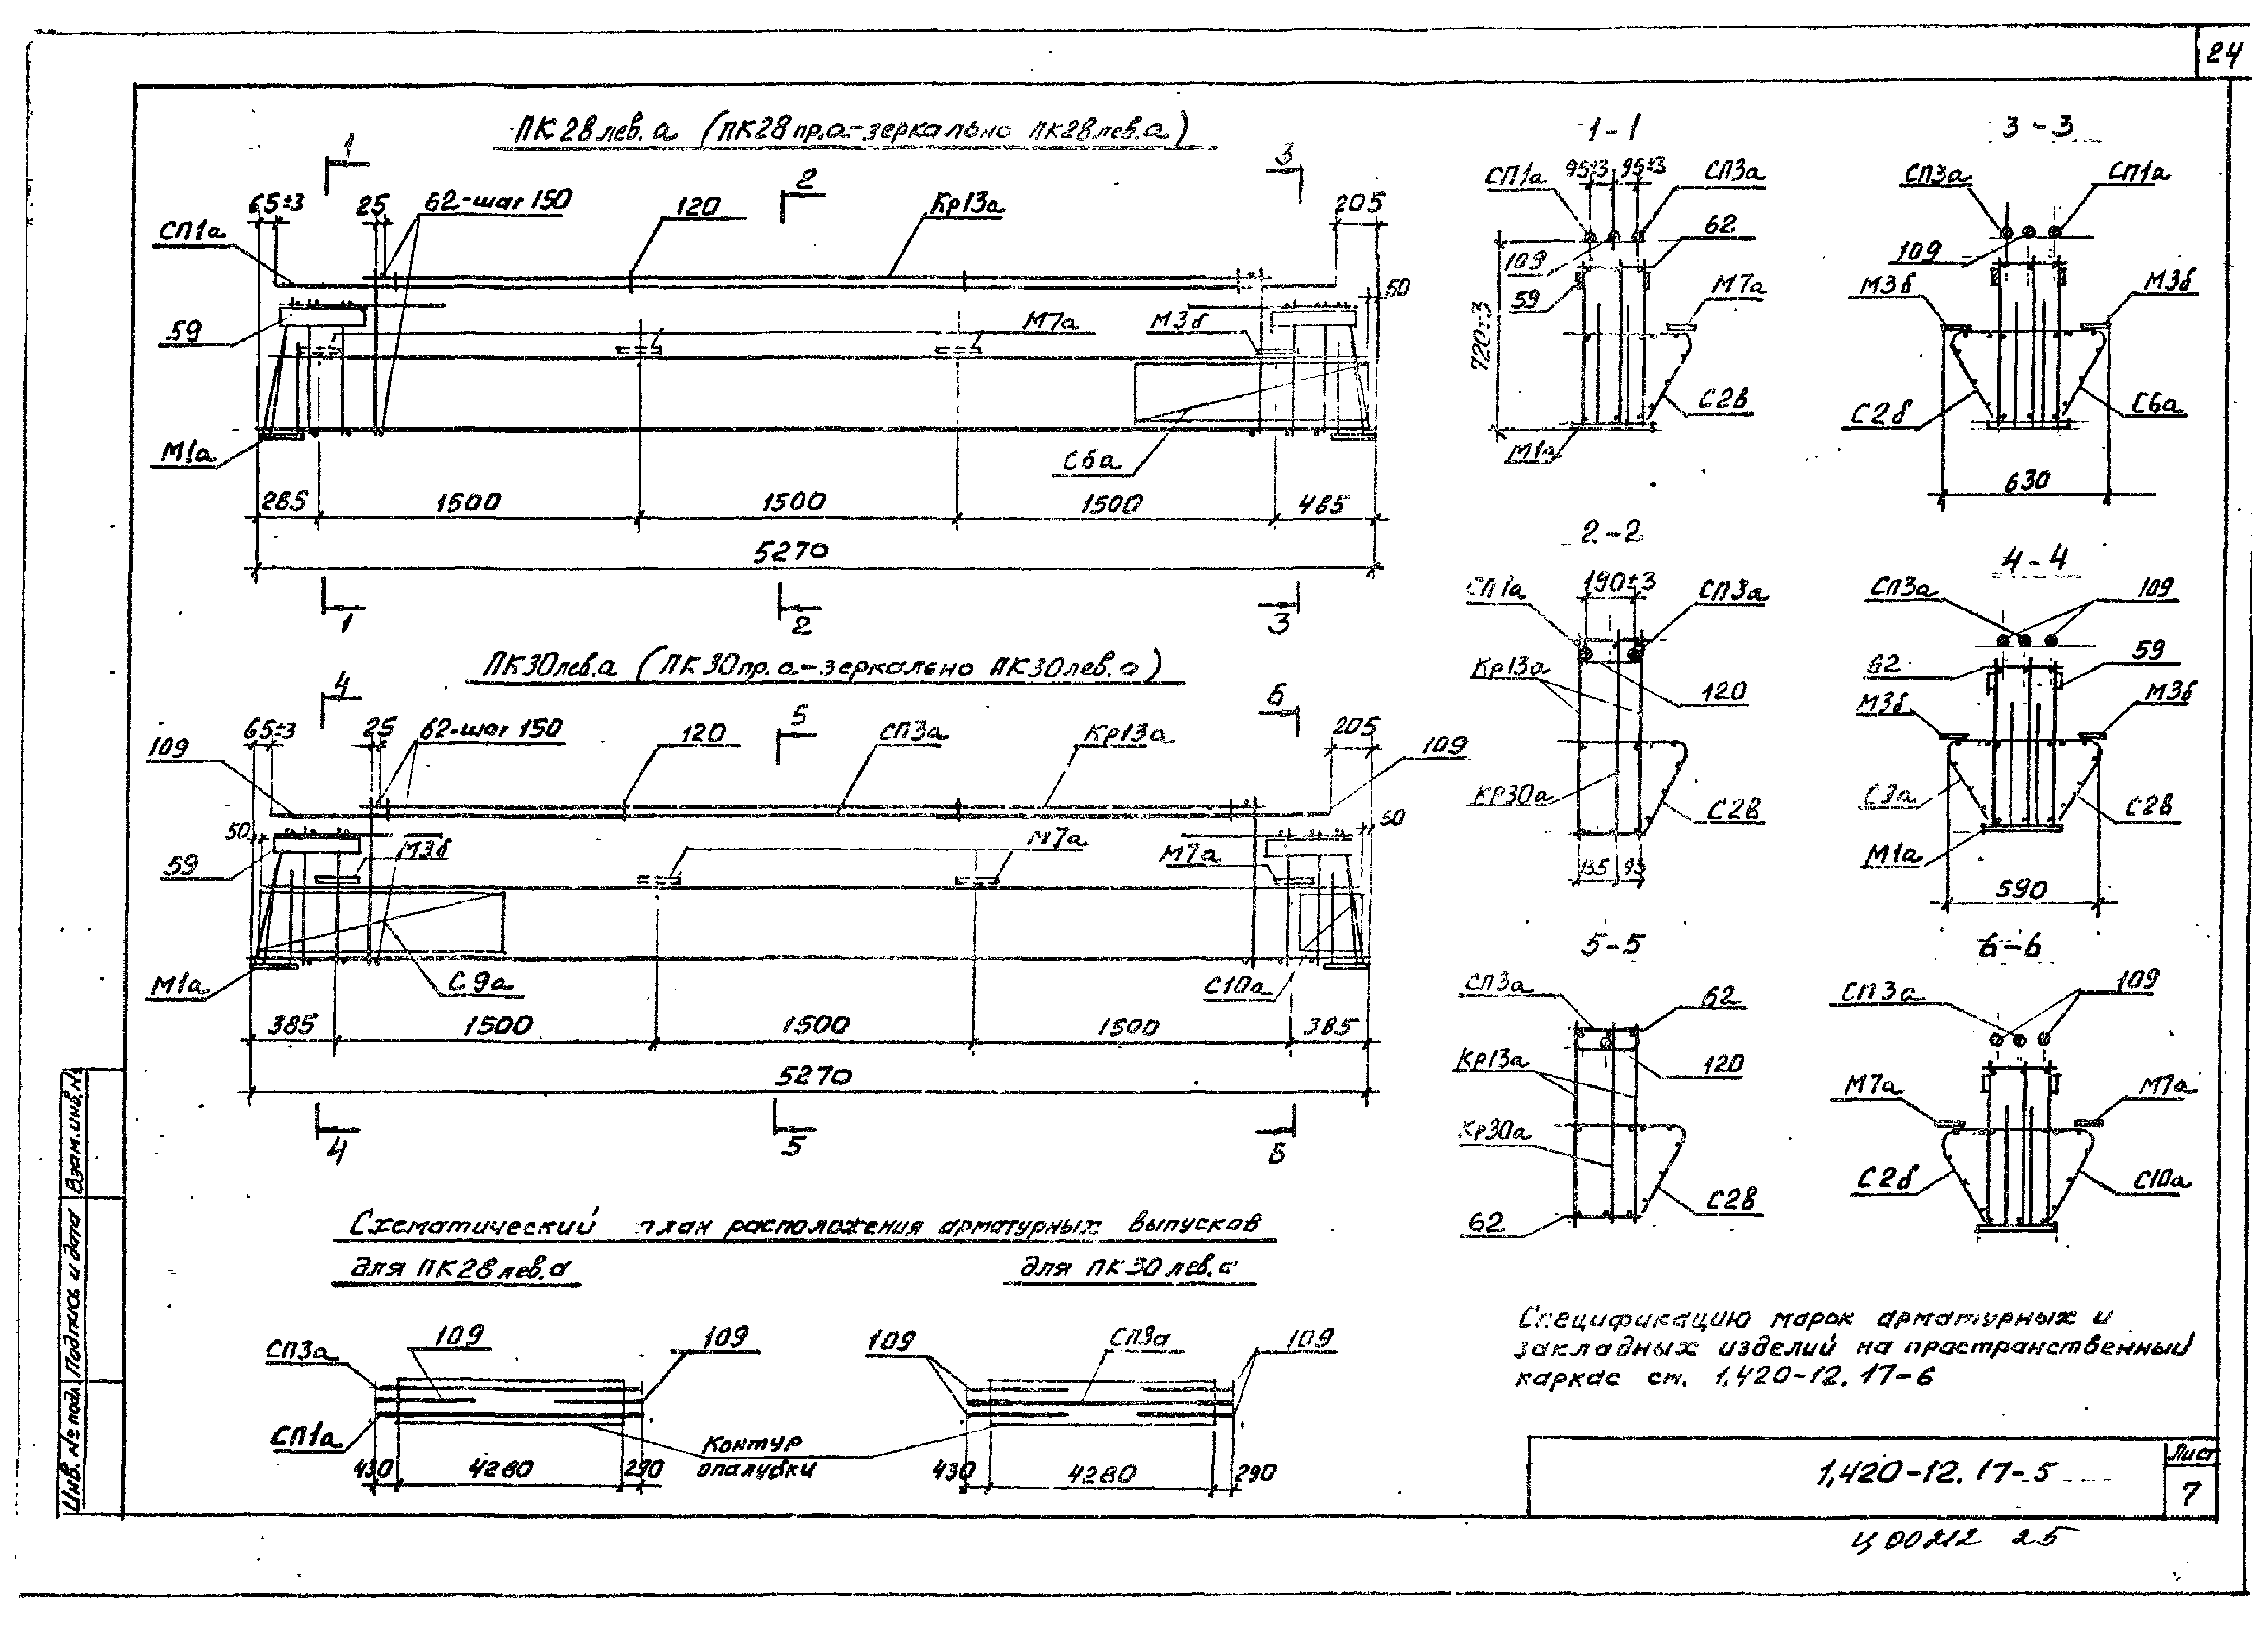 24
ПК28лев.а (ПК28пр.а-зеркально ПК28лев.а)
1
2
3
65±3
25
62-шаг 150
120
Кр13а
205
СП1а
50
59
М7а
М3б
М1а
С6а
285
1500
1500
1500
485
5270
1
2
3
ПК30лев.а (ПК30пр.а-зеркально ПК30лев.а)
4
5
6
65±3
25
62-шаг 150
120
СП3а
Кр13а
205
109
109
50
50
59
М3б
М7а
М7а
М1а
С9а
С10а
385
1500
1500
1500
385
5270
4
5
6
1-1
СП1а
95±3
95±3
СП3а
62
109
59
М7а
720±3
С2в
М1а
3-3
СП3а
СП1а
109
М3б
М3б
С2б
С6а
630
2-2
СП1а
190±3
СП3а
Кр13а
120
КР30а
С2в
135
95
4-4
СП3а
109
62
59
М3б
М3б
С3а
С2в
М1а
590
5-5
СП3а
62
Кр13а
120
Кр30а
С2в
62
6-6
СП3а
109
М7а
М7а
С2б
С10а
Схематический план расположения арматурных выпусков
для ПК28лев.а
для ПК30лев.а
СП3а
109
109
СП1а
430
4280
290
Контур
опалубки
109
СП3а
109
430
4280
290
Спецификацию марок арматурных и
закладных изделий на пространственный
каркас см. 1.420-12.17-6
1.420-12.17-5
Лист
7
Ц00212 25
Инв. № подл.
Подпись и дата
Взам.инв.№